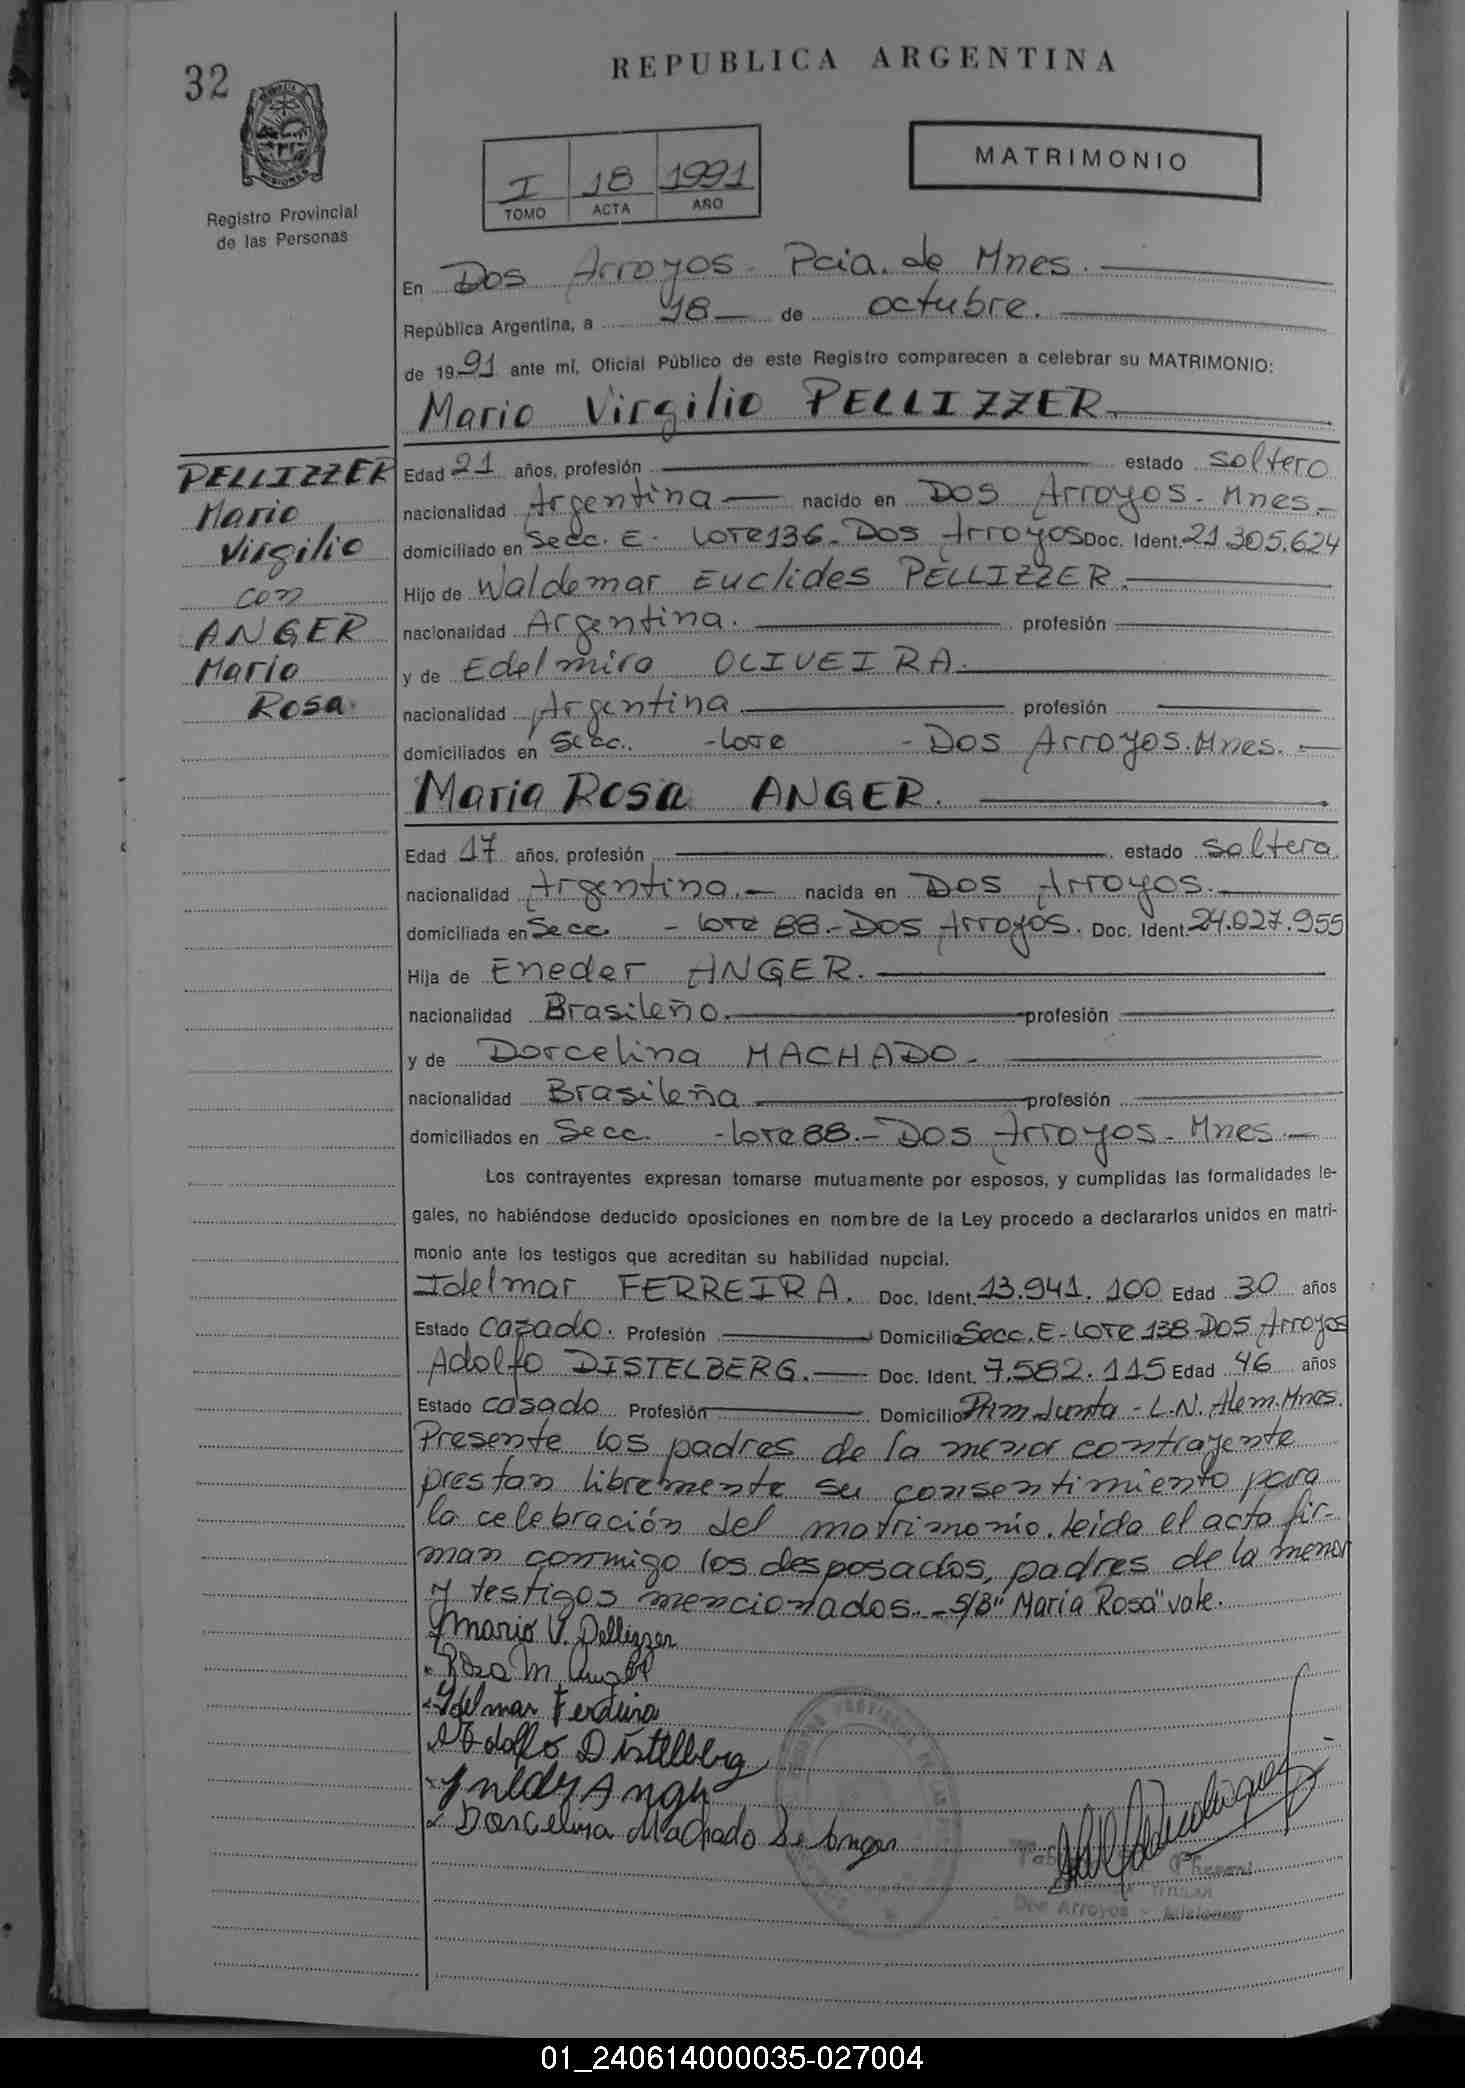 32
REPUBLICA ARGENTINA
MATRIMONIO
I 18 1991
TOMO ACTA AÑO
Registro Provincial
de las Personas
En Dos Arroyos - Pcia. de Mnes.
República Argentina, a 18 de octubre.
de 1991 ante mí, Oficial Público de este Registro comparecen a celebrar su MATRIMONIO:
Mario Virgilio PELLIZZER.
PELLIZZER
Mario
Virgilio
con
ANGER
Maria
Rosa.
Edad 21 años, profesión estado soltero
nacionalidad Argentina nacido en Dos Arroyos - Mnes.
domiciliado en Secc. E. Lote 136 - Dos Arroyos Doc. Ident. 21.305.624
Hijo de Waldemar Euclides PELLIZZER.
nacionalidad Argentina. profesión
y de Edelmira OLIVEIRA.
nacionalidad Argentina profesión
domiciliados en Secc. - Lote - Dos Arroyos. Mnes.
Maria Rosa ANGER.
Edad 17 años, profesión estado soltera
nacionalidad Argentina. nacida en Dos Arroyos.
domiciliada en Secc. - Lote 88.- Dos Arroyos. Doc. Ident. 24.027.955
Hija de Eneder ANGER.
nacionalidad Brasileño. profesión
y de Dorcelina MACHADO.
nacionalidad Brasileña profesión
domiciliados en Secc. - Lote 88.- Dos Arroyos - Mnes.
Los contrayentes expresan tomarse mutuamente por esposos, y cumplidas las formalidades le-
gales, no habiéndose deducido oposiciones en nombre de la Ley procedo a declararlos unidos en matri-
monio ante los testigos que acreditan su habilidad nupcial.
Idelmar FERREIRA. Doc. Ident. 13.941.100 Edad 30 años
Estado casado. Profesión Domicilio Secc. E - Lote 138 - Dos Arroyos
Adolfo DISTELBERG. Doc. Ident. 7.582.115 Edad 46 años
Estado casado Profesión Domicilio Prim Junta - L.N. Alem. Mnes.
Presente los padres de la menor contrayente
prestan libremente su consentimiento para
la celebración del matrimonio. Leida el acta fir-
man conmigo los desposados, padres de la menor
y testigos mencionados. - S/B "Maria Rosa" vale.
Mario V. Pellizzer
Rosa M. Anger
Idelmar Ferreira
Adolfo Distelberg
Anger
Dorcelina Machado De Anger
Dos Arroyos - Misiones
01_240614000035-027004